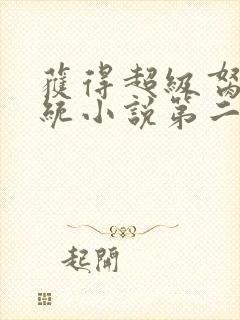 獲得超級
統小說第二
起開